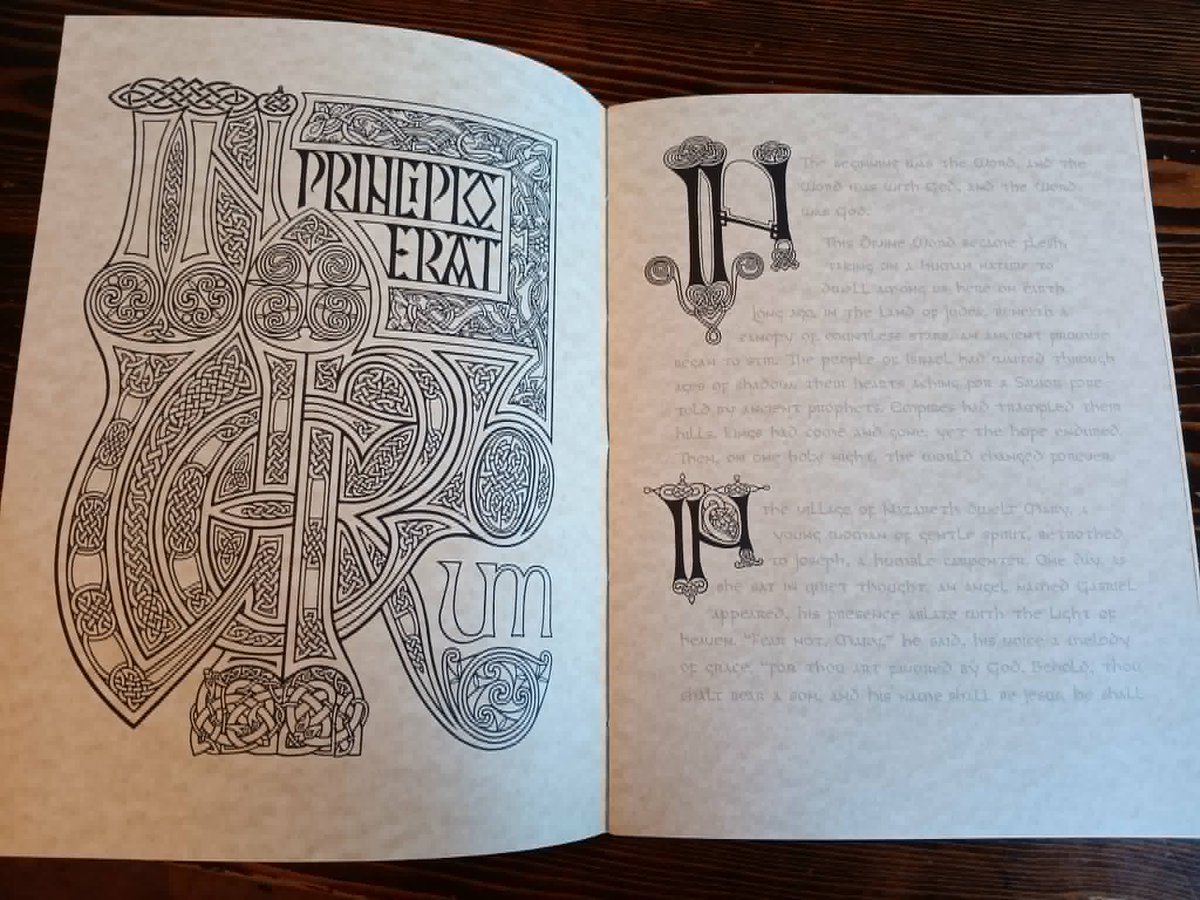 IN
PRINCIPIO
ERAT
VERB
UM
IN The beginning was the Word, and the
Word was with God, and the Word
was God.
This Divine Word became flesh,
taking on a human nature to
dwell among us here on earth.
Long ago, in the land of Judea, beneath a
canopy of countless stars, an ancient promise
began to stir. The people of Israel had waited through
ages of shadow, their hearts aching for a Savior fore
told by ancient prophets. Empires had trampled their
hills, kings had come and gone, yet the hope endured.
Then, on one holy night, the world changed forever.
IN the village of Nazareth dwelt Mary, a
young woman of gentle spirit, betrothed
to Joseph, a humble carpenter. One day, as
she sat in quiet thought, an angel named Gabriel
appeared, his presence ablaze with the light of
heaven. "Fear not, Mary," he said, his voice a melody
of grace, "for thou art favored by God. Behold, thou
shalt bear a son, and his name shall be Jesus. he shall